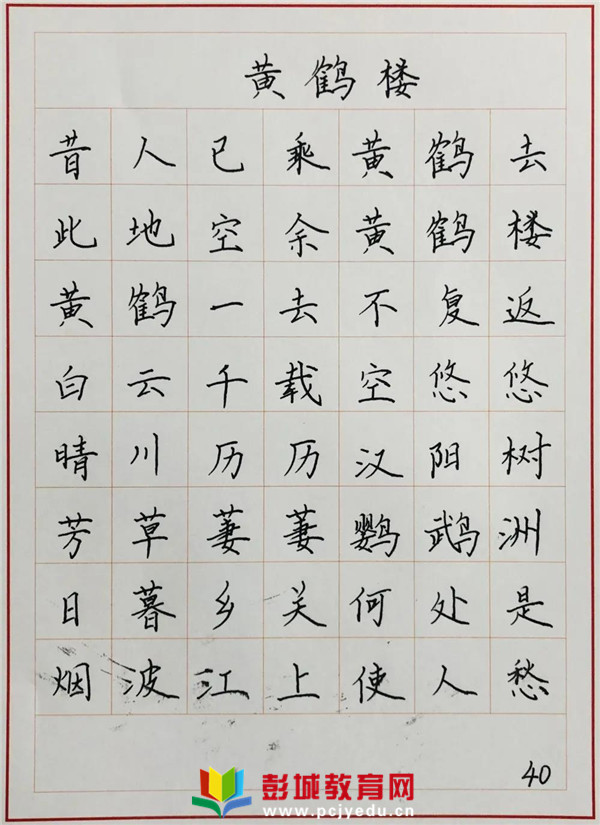 黄鹤楼
昔人已乘黄鹤去
此地空余黄鹤楼
黄鹤一去不复返
白云千载空悠悠
晴川历历汉阳树
芳草萋萋鹦鹉洲
日暮乡关何处是
烟波江上使人愁
40
彭城教育网
www.pcjyedu.cn